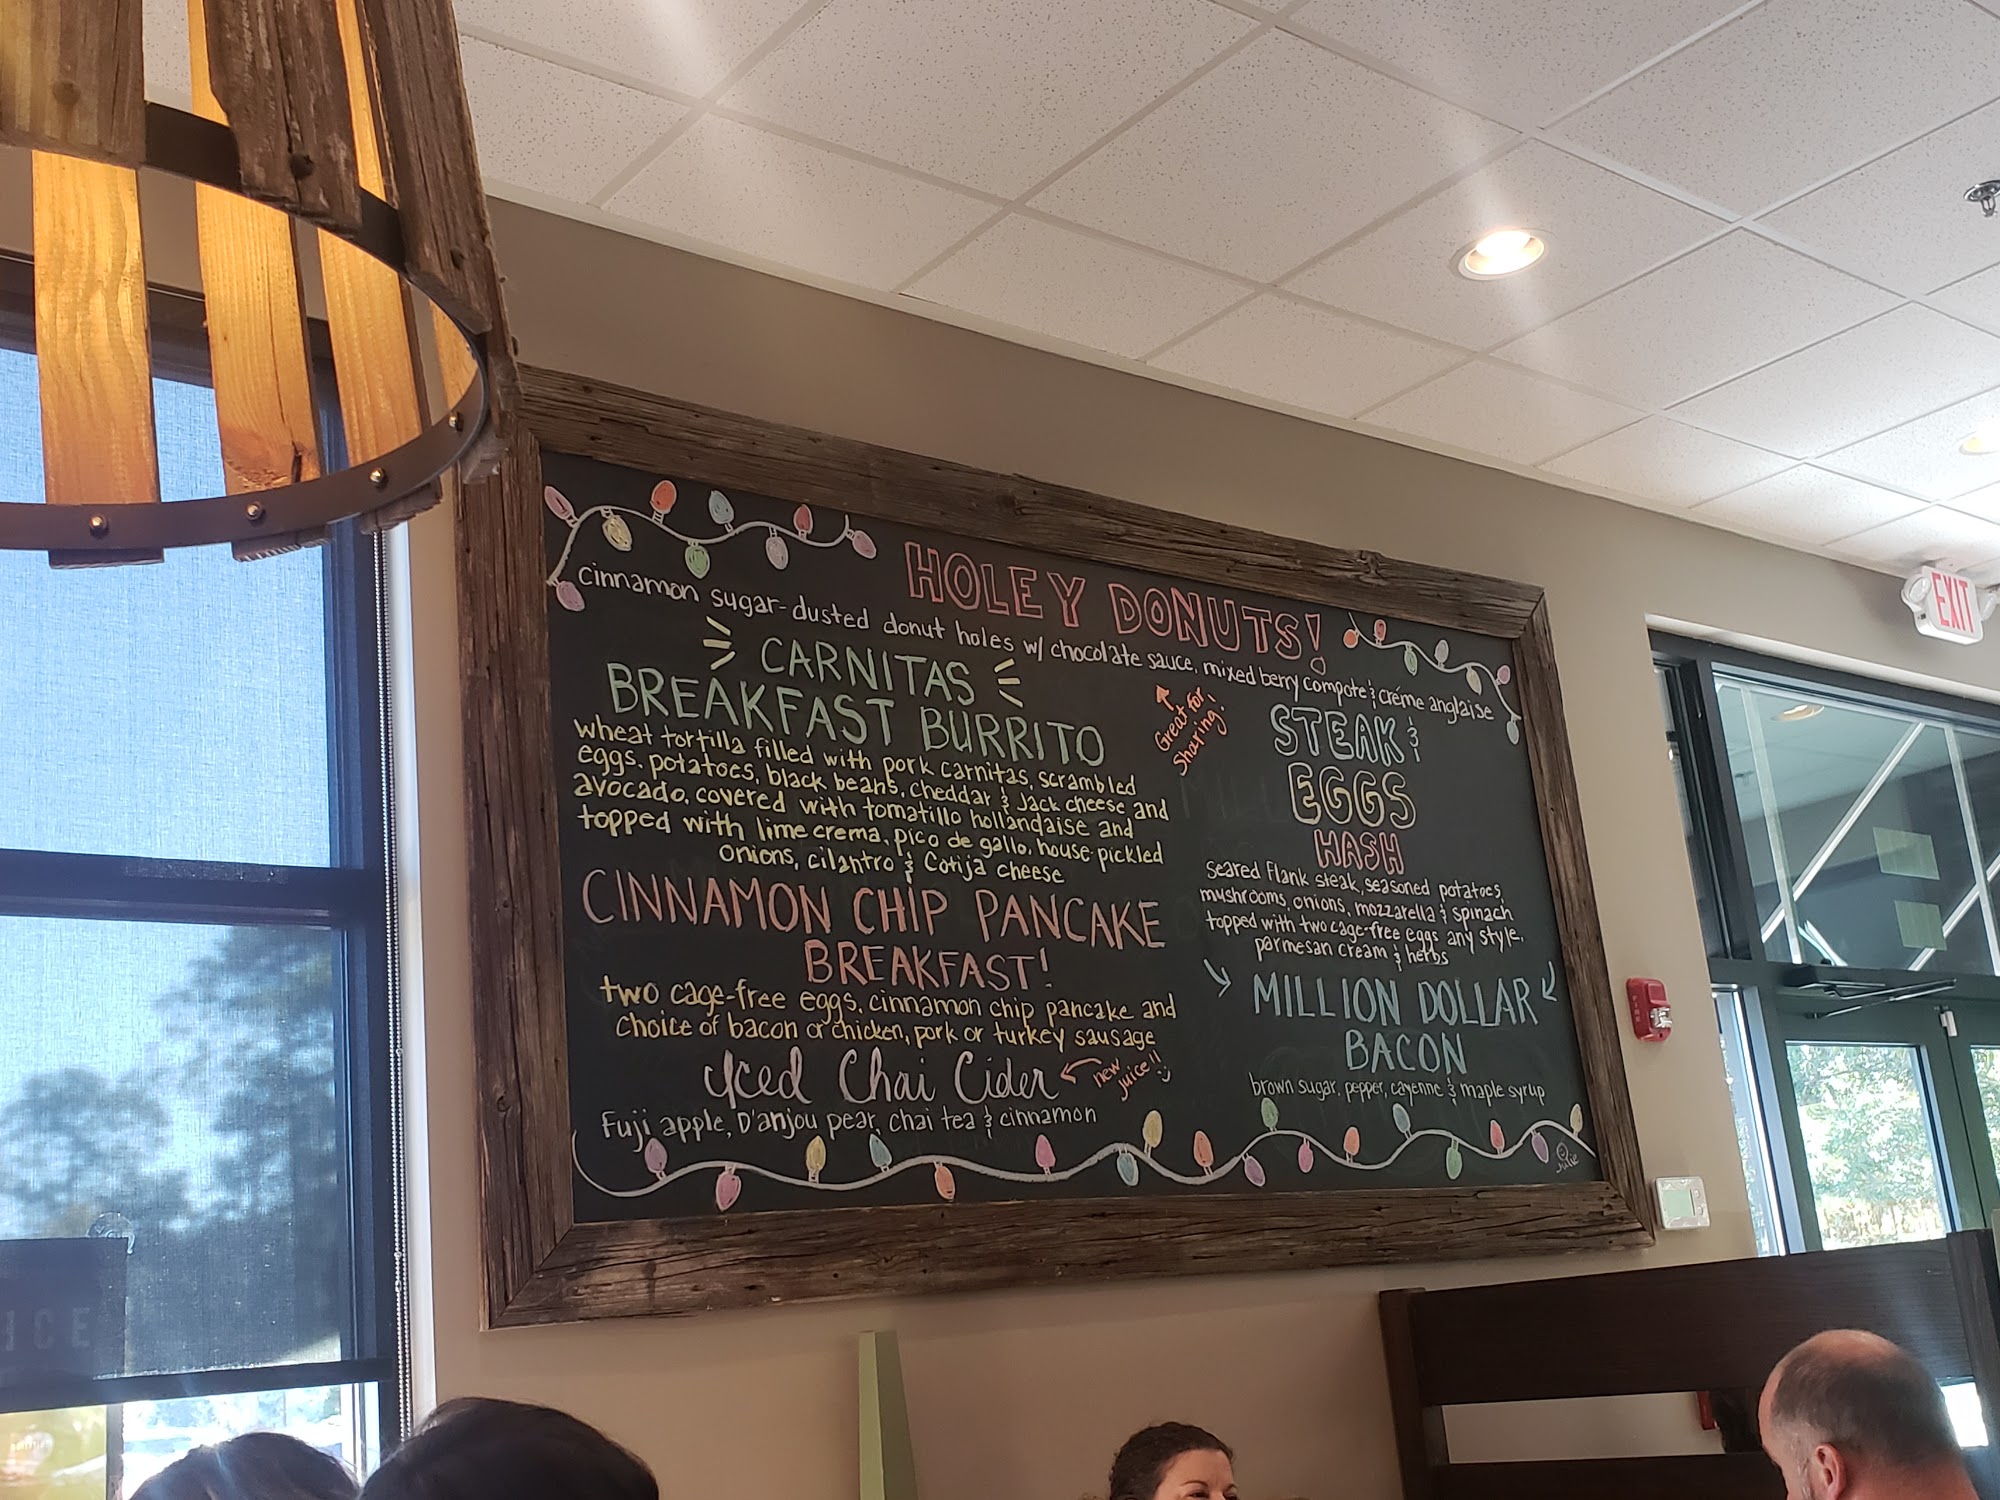 HOLEY DONUTS!
cinnamon sugar-dusted donut holes w/ chocolate sauce, mixed berry compote & créme anglaise
Great for
sharing!
CARNITAS
BREAKFAST BURRITO
wheat tortilla filled with pork carnitas, scrambled
eggs, potatoes, black beans, cheddar & Jack cheese and
avocado, covered with tomatillo hollandaise and
topped with lime crema, pico de gallo, house-pickled
onions, cilantro & Cotija cheese
CINNAMON CHIP PANCAKE
BREAKFAST!
two cage-free eggs, cinnamon chip pancake and
choice of bacon or chicken, pork or turkey sausage
Iced Chai Cider
new
juice!!
Fuji apple, D'anjou pear, chai tea & cinnamon
STEAK &
EGGS
HASH
seared flank steak, seasoned potatoes,
mushrooms, onions, mozzarella & spinach
topped with two cage-free eggs any style,
parmesan cream & herbs
MILLION DOLLAR
BACON
brown sugar, pepper, cayenne & maple syrup
Julie
EXIT
FIRE